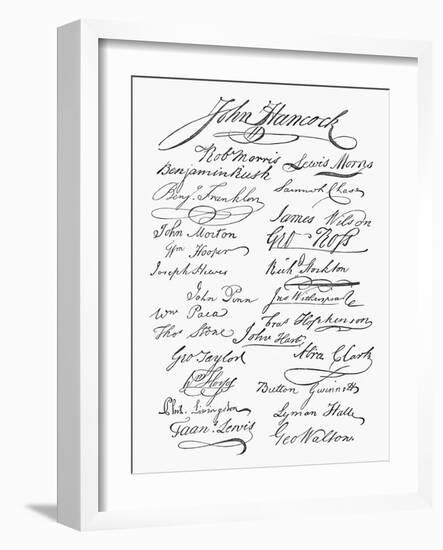 John Hancock
Rob Morris Lewis Morris
Benjamin Rush
Samuel Chase
Benj. Franklin
James Wilson
John Morton Geo Ross
Wm Hooper
Joseph Hewes Richd Stockton
John Penn Jno Witherspoon
Wm Paca
Fras Hopkinson
Thos Stone John Hart
Geo Taylor Abra Clark
Wm Floyd Button Gwinnett
Phil. Livingston Lyman Hall
Frans. Lewis Geo Walton.